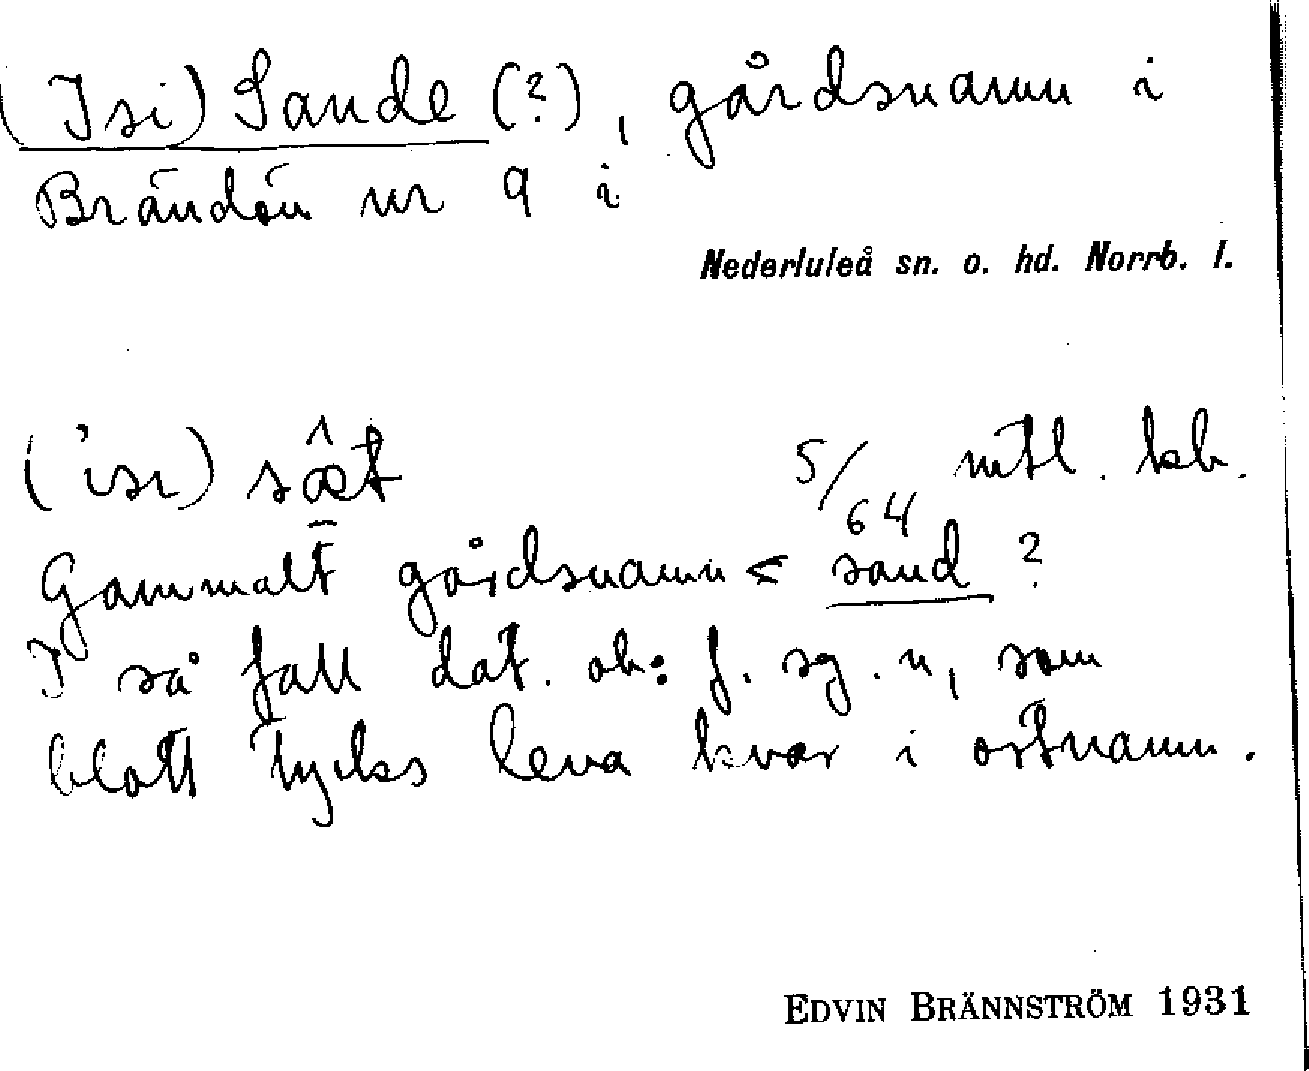 (Isi) Sande (?), gårdsnamn i
Brändön nr 9 i
Nederluleå sn. o. hd. Norrb. l.
5/64 mtl. kb.
Gammalt gårdsnamn < sand ?
I så fall dat. ob: f. sg. n, som
blott tycks leva kvar i ortnamn.
EDVIN BRÄNNSTRÖM 1931